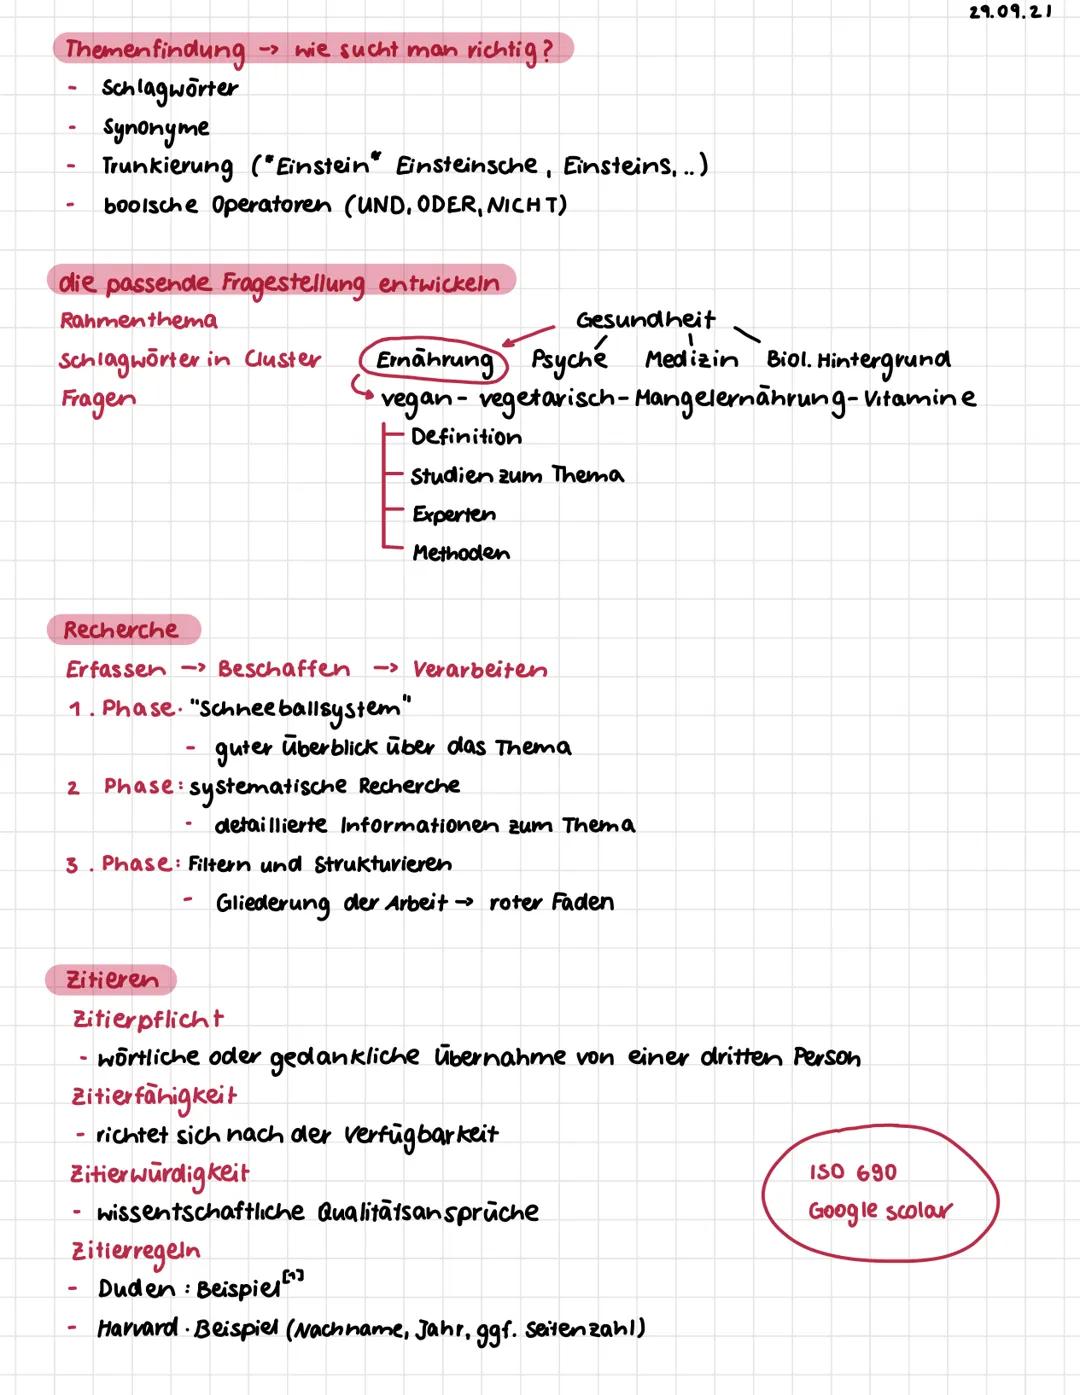 29.09.21
Themenfindung -> wie sucht man richtig?
- Schlagwörter
- Synonyme
- Trunkierung ("Einstein" Einsteinsche, Einsteins, ..)
- boolsche Operatoren (UND, ODER, NICHT)
die passende Fragestellung entwickeln
Rahmenthema Gesundheit
Schlagwörter in Cluster Ernährung Psyche Medizin Biol. Hintergrund
Fragen vegan - vegetarisch - Mangelernährung - Vitamine
Definition
Studien zum Thema
Experten
Methoden
Recherche
Erfassen -> Beschaffen -> Verarbeiten
1. Phase: "Schneeballsystem"
- guter überblick über das Thema
2 Phase: systematische Recherche
- detaillierte Informationen zum Thema
3. Phase: Filtern und Strukturieren
- Gliederung der Arbeit → roter Faden
Zitieren
Zitierpflicht
- wörtliche oder gedankliche Übernahme von einer dritten Person
Zitierfähigkeit
- richtet sich nach der Verfügbarkeit
Zitierwürdigkeit
- wissentschaftliche Qualitätsansprüche
Zitierregeln
- Duden: Beispiel [1]
- Harvard. Beispiel (Nachname, Jahr, ggf. Seitenzahl)
ISO 690
Google scolar